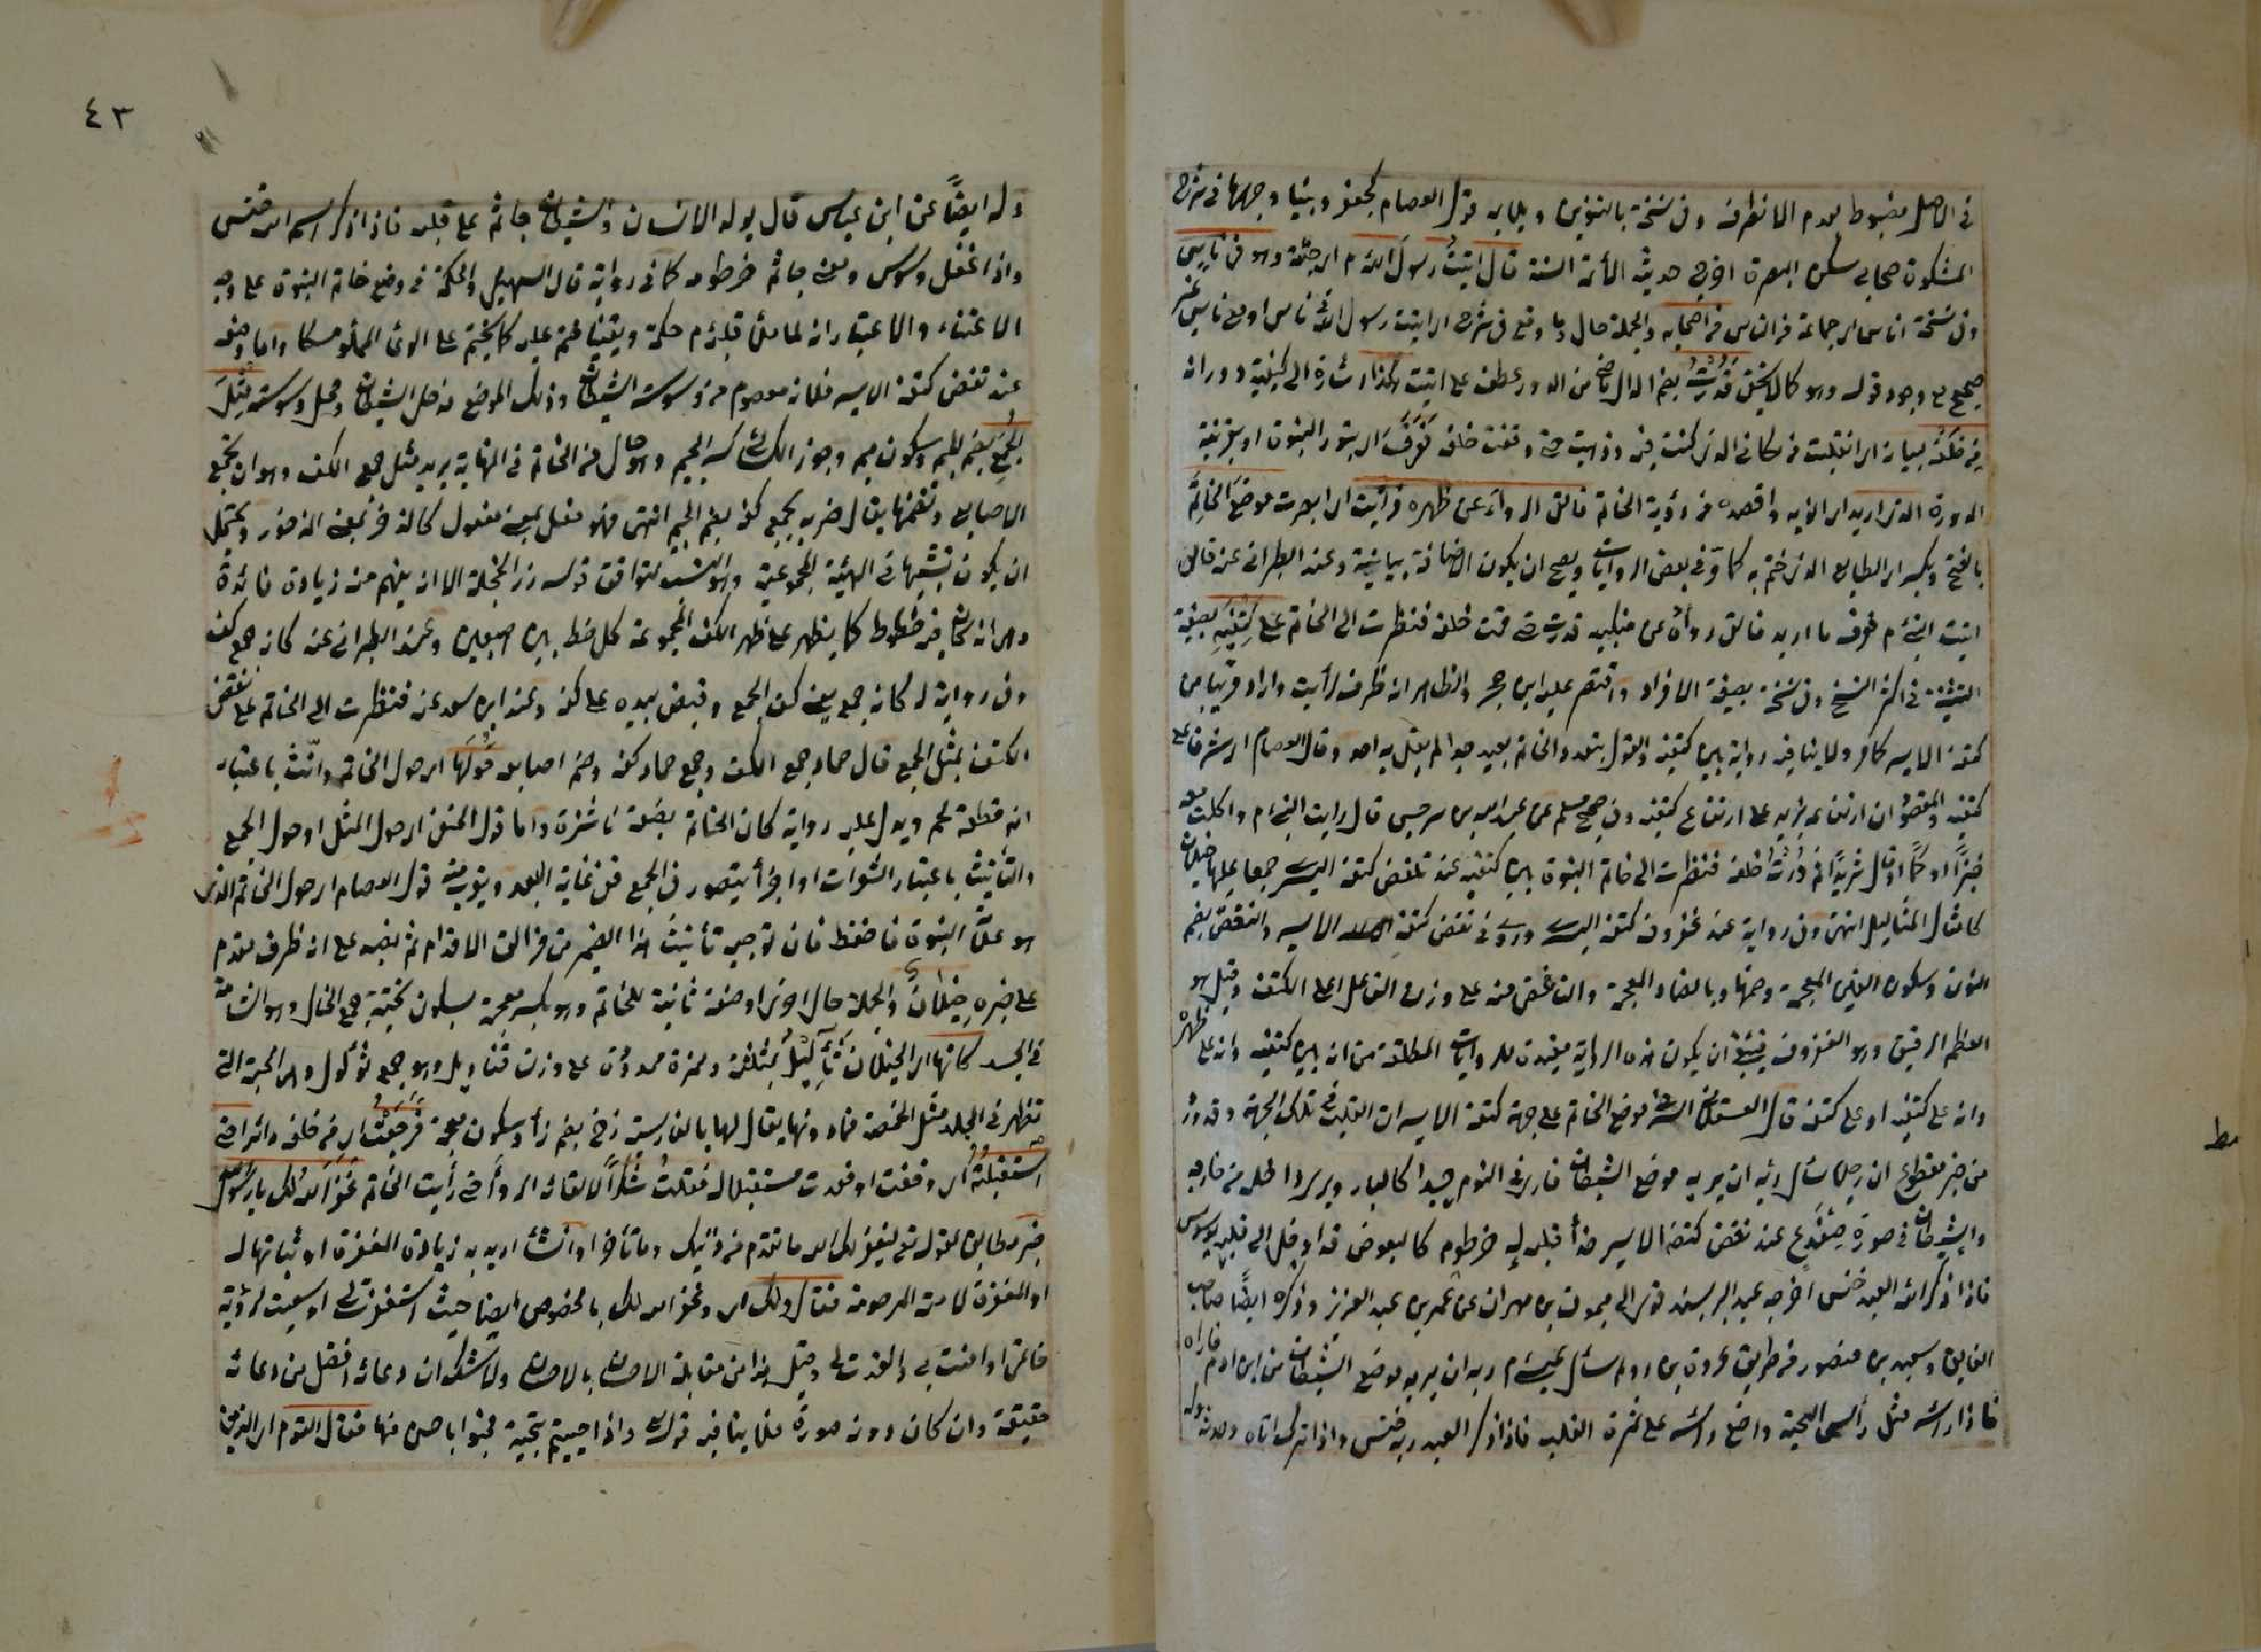 في الاصل مضبوط بعدم الانصراف وفي نسخة بالتنوين ويلايه قول العصام كجعفر وبينا وجهها في شرح
المشكوة صحابي سكن البصرة اخرج حديثه الأئمة الستة قال اتيت رسول الله م اي جئته وهو في ناس
وفي نسخة اناس اي جماعة من الناس من اصحابه والجملة حال وما وقع في شرح اي اتيت رسول الله في ناس او مع ناس غير
صحيح مع وجود قوله وهو كما لا يخفى فدرت بضم الدال ماض من الدور عطف على اتيت هكذا اشارة الى كيفية دورانه
من خلفه بيانه اي انقلبت من مكاني الذي كنت فيه وذهبت حتى وقفت خلفه فعرف اي بنور النبوة او بقرينة
الدورة الذي اريد اي الذي به واقصده من رؤية الخاتم فالقى الرداء عن ظهره فرأيت اي ابصرت موضع الخاتم
بالفتح وبكسر اي الطابع الذي ختم به كما في بعض الروايات ويصح ان يكون الاضافة بيانية وعند الطبراني عنه قال
اتيت النبي م فعرف ما اريد فالقى رداه عن منكبيه فدرت حتى قمت خلفه فنظرت الى الخاتم على كتفيه بصيغة
التثنية في اكثر النسخ وفي نسخة بصيغة الافراد واقتصر عليه ابن حجر والظاهر انه ظرف لرأيت واراد قريبا من
كتفه الايسر كما مر ولا ينافيه رواية بين كتفيه والقول بتعدد الخاتم بعيد جدا لم يقل به احد وقال العصام اي مشرفا على
كتفيه والمقصود ان ارتفاعه يزيد على ارتفاع كتفيه وفي صحيح مسلم عن عبد الله بن سرجس قال رايت النبي م واكلت معه
خبزًا ولحمًا او قال ثريدًا ثم درت خلفه فنظرت الى خاتم النبوة بين كتفيه عند نغض كتفه اليسرى جمعا عليها خيلان
كامثال الثآليل انتهى وفي رواية عند غضروف كتفه اليسرى وروي في نغض كتفه الايسر والنغض بضم
النون وسكون الغين المعجمة وضمها وبالضاد المعجمة والناغض منه على وزن الفاعل اعلى الكتف وقيل هو
العظم الرقيق وهو الغضروف فينبغي ان يكون هذه الرواية مقيدة للروايات المطلقة من انه بين كتفيه وانه على ظهره
وانه على كتفيه او على كتفه قال العسقلاني السر في موضع الخاتم على جهة كتفه الايسر ان القلب في تلك الجهة وقد ورد
من خبر مقطوع ان رجلا سأل ربه ان يريه موضع الشيطان فاري في النوم جسدا كالبلور ويرى داخله من خارجه
والشيطان في صورة ضفدع عند نغض كتفه الايسر حذأ قلبه له خرطوم كالبعوض قد ادخل الى قلبه يوسوس
فاذا ذكر الله العبد خنس اخرجه عبد البر بسند قوي الى ميمون بن مهران عن عمر بن عبد العزيز وذكره ايضًا صاحب
الفايق وسعيد بن منصور من طريق عروة بن رويم سأل عيسى م ربه ان يريه موضع الشيطان من ابن ادم فاراه
فاذا رأسه مثل رأس الحية واضع رأسه على ثمرة القلب فاذا ذكر العبد ربه خنس واذا ترك اتاه وحدثه
وله
مط
٤٣
وله ايضًا عن ابن عباس قال يولد الانسان والشيطان جاثم على قلبه فاذا ذكر اسم الله خنس
واذا غفل وسوس ومعنى جاثم خرطومه كما في رواية قال السهيلي والحكمة في وضع خاتم النبوة على وجه
الاعتناء والاعتبار انه لما ملئ قلبه م حكمة ويقينا ختم عليه كما يختم على الوعاء المملو مسكا واما وضعه
عند نغض كتفه الايسر فلانه معصوم من وسوسة الشيطان وذلك الموضع مدخل الشيطان ومحل وسوسته مثل
الجمع بضم الجيم وسكون ميم وجوز الكسائي كسر الجيم وهو حال من الخاتم في النهاية يريد مثل جمع الكف وهو ان يجمع
الاصابع وتضمها يقال ضربه بجمع كفه بضم الجيم انتهى فهو فعل بمعنى مفعول كالذخر بمعنى المذخور ويحتمل
ان يكون تشبيها في الهيئة المجموعية وهو انسب لتوافق قوله زر الحجلة الا انه يفهم منه زيادة فائدة
وهي انه كان فيه خطوط كما يظهر على ظهر الكف المجموعة كل خط بين اصبعين وعند الطبراني عنه كانه جمع كف
وفي رواية له كانه جمع يعني كف الجمع وقبض بيده على كفه وعند ابن سعد عنه فنظرت الى الخاتم على نغض
الكتف مثل الجمع قال حماد جمع الكف وجمع حماد كفه وضم اصابعه حولها اي حول الخاتم وانّث باعتبار
انه قطعة لحم ويدل عليه رواية كان الخاتم بضعة ناشزة واما قول الحنفي اي حول المثل او حول الجمع
والتأنيث باعتبار الشعرات او اجزأ يتصور في الجمع ففي غاية البعد ويقرب منه قول العصام اي حول الخاتم الذي
هو علامة النبوة فاحفظ فان توجيه تأنيث هذا الضمير من مزالق الاقدام ثم نصبه على انه ظرف مقدم
على خبره خيلان والجملة حال اخرى او صفة ثانية للخاتم وهو بكسر معجمة فسكون تحتية جمع الخال وهو الشامة
في الجسد كانها اي الخيلان ثآليل بمثلثة وهمزة ممدودة على وزن قناديل وهو جمع ثؤلول وهي الحبة التي
تظهر في الجلد مثل الحمصة فما دونها يقال لها بالفارسية زخ بضم زأ وسكون معجمة فرجعت اي من خلفه دائرا حتى
استقبلته اي وقفت او قعدت مستقبلا له فقلت شكرًا لالقائه الردأ حتى رأيت الخاتم غفر الله لك يا رسول الله
خبر مطابق لقوله تع ليغفر لك الله ما تقدم من ذنبك وما تأخر او انشأ اريد به زيادة المغفرة او ثباتها له
او المغفرة لامته المرحومة فقال ولك اي وغفر الله لك بالخصوص ايضا حيث استغفرت لي او سعيت لرؤية
خاتمي او امنت بي وانقدت لي وقيل هذا من مقابلة الاحسان بالاحسان ولا شك ان دعائه افضل من دعائه
حقيقة وان كان دونه صورة فلا ينافيه قوله تع واذا حييتم بتحية فحيوا باحسن منها فقال القوم اي الذين